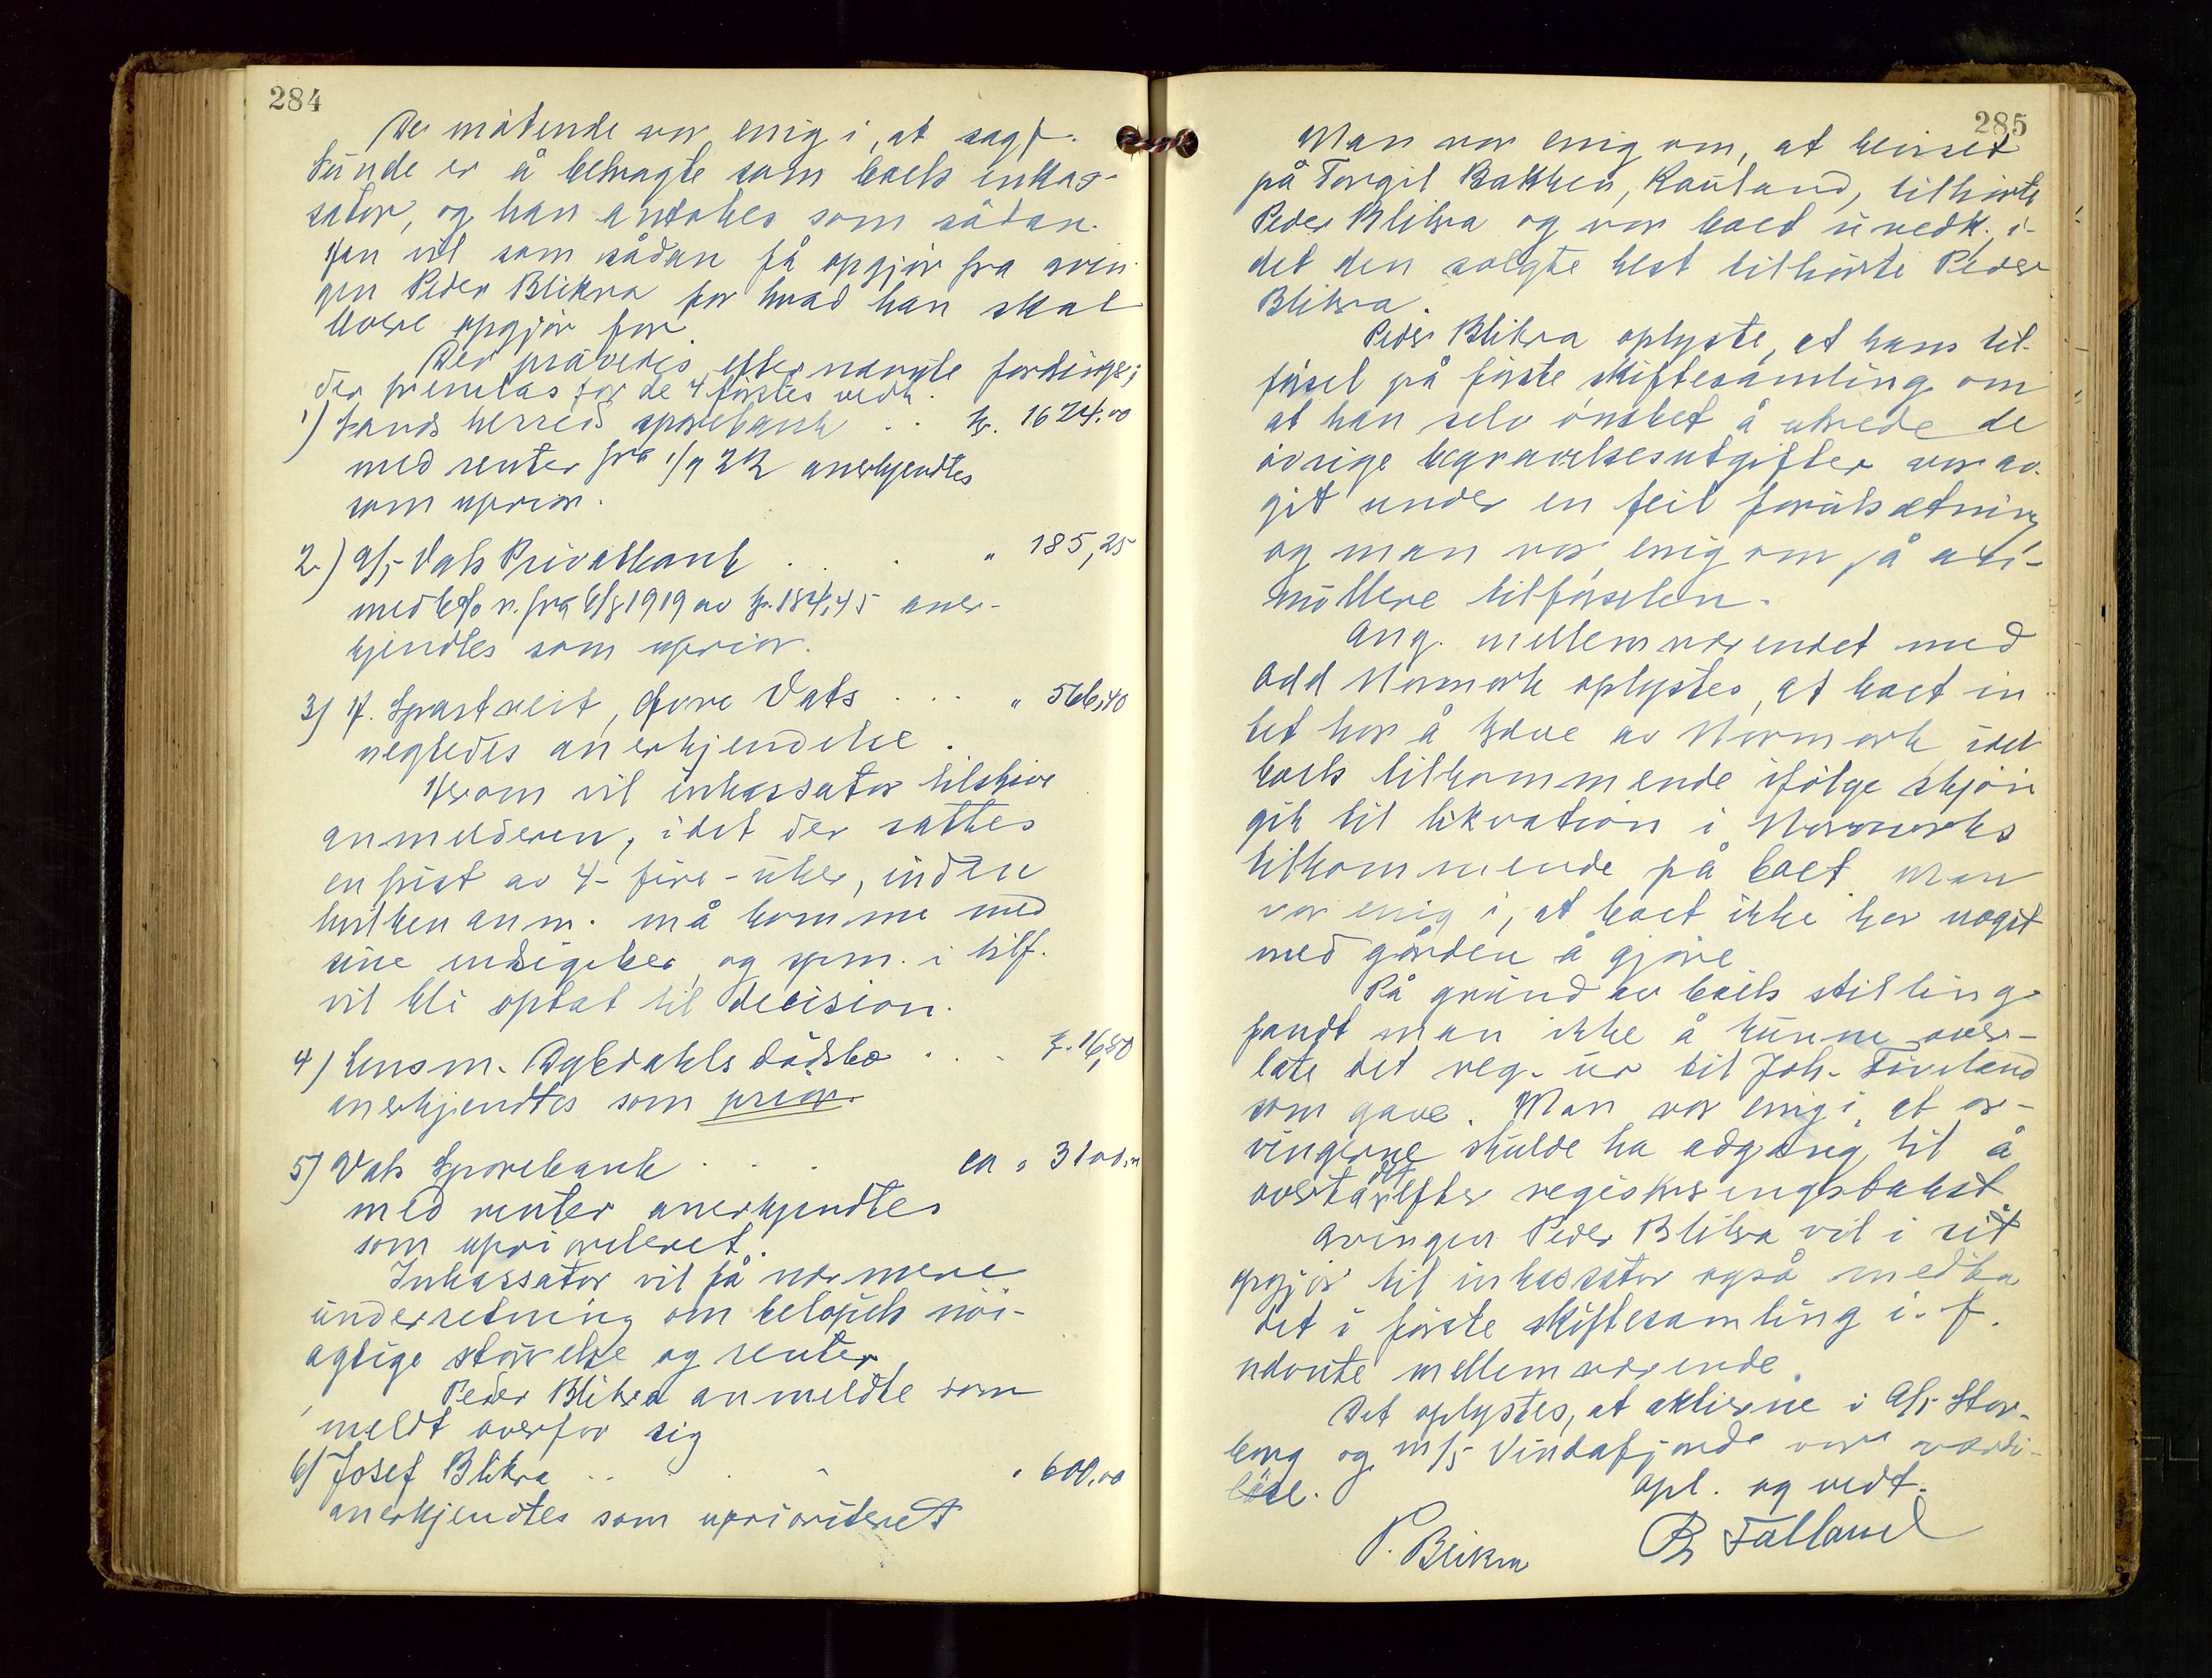 284
De møtende var enig i, at sagf.
Sunde er å betragte som boets inkas-
sator, og han antokes som sådan.
Han vil som sådan få opgjör fra arvin
gen Peder Blikra for hvad han skal
levere opgjör for.
Der prøvedes efternævnte fordringer;
der fremlas for de 4 förstes vedk.
1) Sands herreds sparebank . . kr. 1624.00
med renter fra 1/9 22 anerkjendtes
som uprior.
2) A/S Vats Privatbank . . " 185,25
med 6% r. fra 6/8 1919 av kr. 184,45 aner-
kjendtes som uprior.
3) H. Spartveit, Øvre Vats . . . " 566,40
negtedes anerkjendelse.
Herom vil inkassator tilskrive
anmelderen, idet der sattes
en frist av 4 - fire - uker, inden
hvilken anm. må komme med
sine indsigelser og spm. i tilf.
vil bli optat til decision.
4) Lensm. Dybdahls dödsbo . . . kr. 16,50
anerkjendtes som prior.
5) Vats Sparebank . . . ca " 3100.00
med renter anerkjendtes
som uprioriteret.
Inkassator vil få nærmere
underretning om belöpets nöi-
agtige störrelse og renter.
Peder Blikra anmeldte som
meldt overfor sig
6) Josef Blikra . . . " 600.00
anerkjendtes som uprioriteret
285
Man var enig om, at beviset
på Torgil Bakken, Rauland, tilhörte
Peder Blikra og var boet uvedk., i-
det den solgte hest tilhörte Peder
Blikra.
Peder Blikra oplyste, at hans til-
försel på förste skiftesamling om
at han selv önsket å utrede de
övrige begravelsesutgifter var av-
git under en feil forutsætning
og man var enig om på an-
nullere tilförselen.
Ang. mellemværendet med
Odd Normark oplystes, at boet in
tet har å kræve av Normark idet
boets tilkommende ifölge skjön
gik til likvation i Normarks
tilkommende på boet. Man
var enig i, at boet ikke har noget
med gården å gjöre
På grund av boets stilling
fandt man ikke å kunne over-
late det reg. ur til Joh. Fiveland
som gave. Man var enig i, at ar-
vingerne skulde ha adgang til å
overta det efter registreringstakst
Arvingen Peder Blikra vil i sit
opgjör til inkassator også medta
det i förste skiftesamling i. f.
nævnte mellemværende.
Det oplystes, at aktierne i A/S Stor-
borg og M/S Vindafjord var værdi-
löse.
Opl. og vedt.
P. Blikra